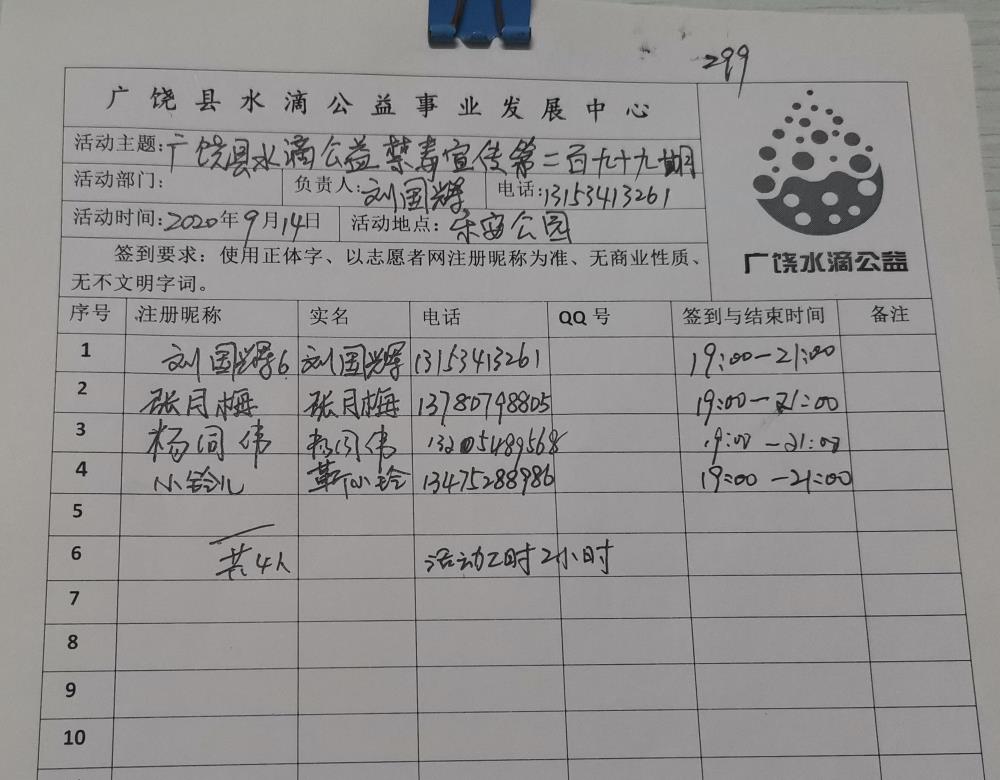 299
广饶县水滴公益事业发展中心
活动主题:广饶县水滴公益禁毒宣传第二百九十九期
活动部门: 负责人:刘国辉 电话:13153413261
活动时间:2020年9月14日 活动地点:乐安公园
签到要求:使用正体字、以志愿者网注册昵称为准、无商业性质、
无不文明字词。
广饶水滴公益
序号 注册昵称 实名 电话 QQ号 签到与结束时间 备注
1 刘国辉6 刘国辉 13153413261 19:00-21:00
2 张月梅 张月梅 13780798805 19:00-21:00
3 杨同伟 杨同伟 13205489568 19:00-21:00
4 小铃儿 靳小铃 13475288986 19:00-21:00
5
6 共4人 活动工时2小时
7
8
9
10